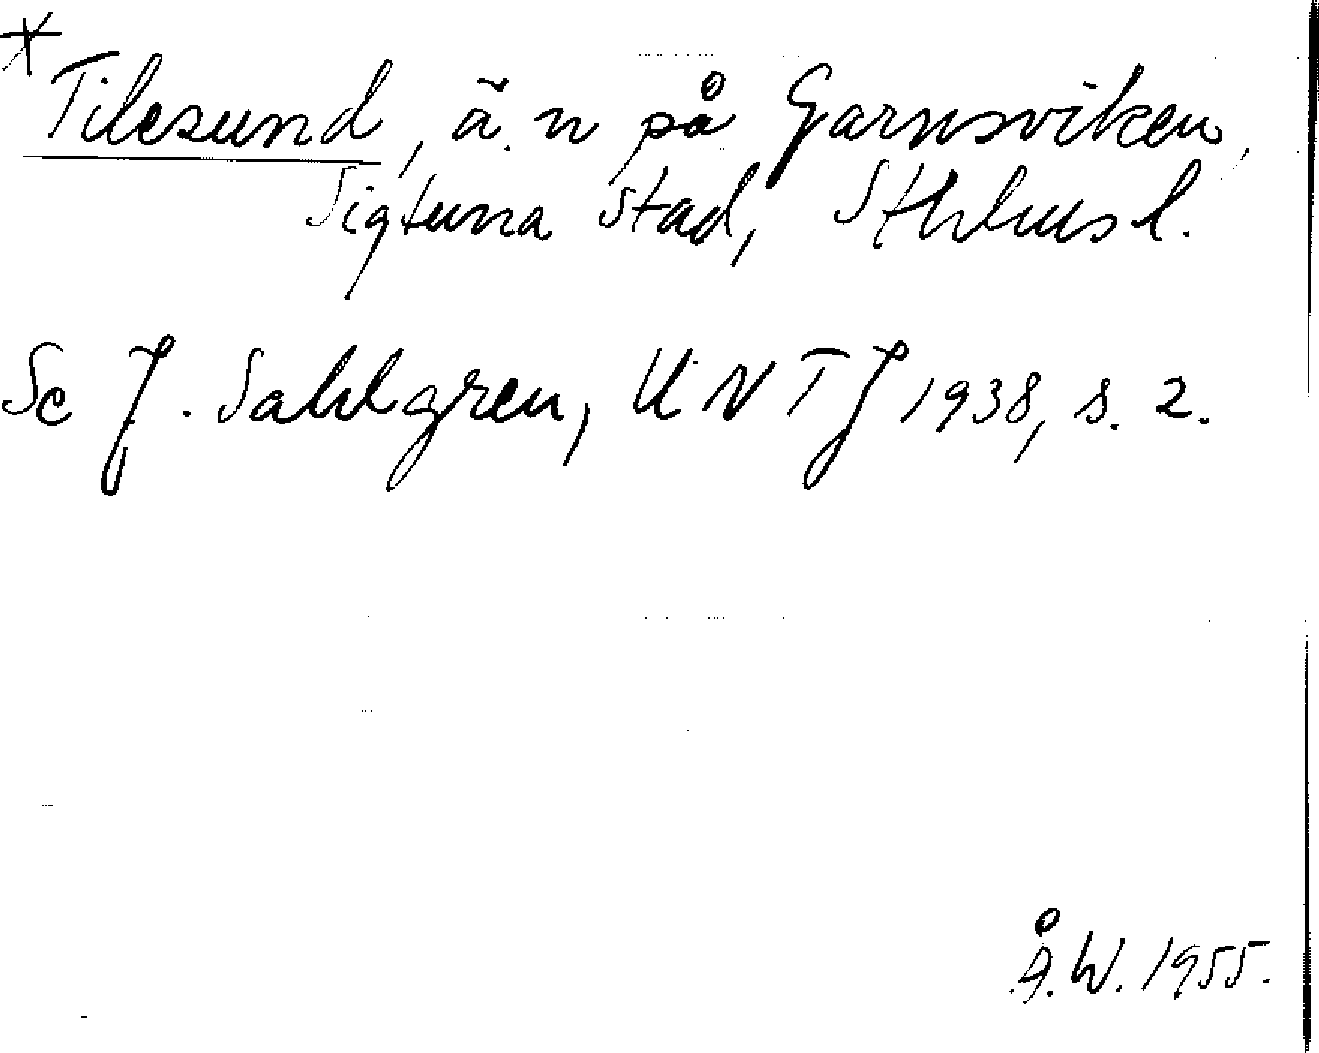 *
Tilesund, ä. n på Garnsviken,
Sigtuna stad, Sthlms l.
Se J. Sahlgren, UNTJ 1938, s. 2.
Å. W. 1955.